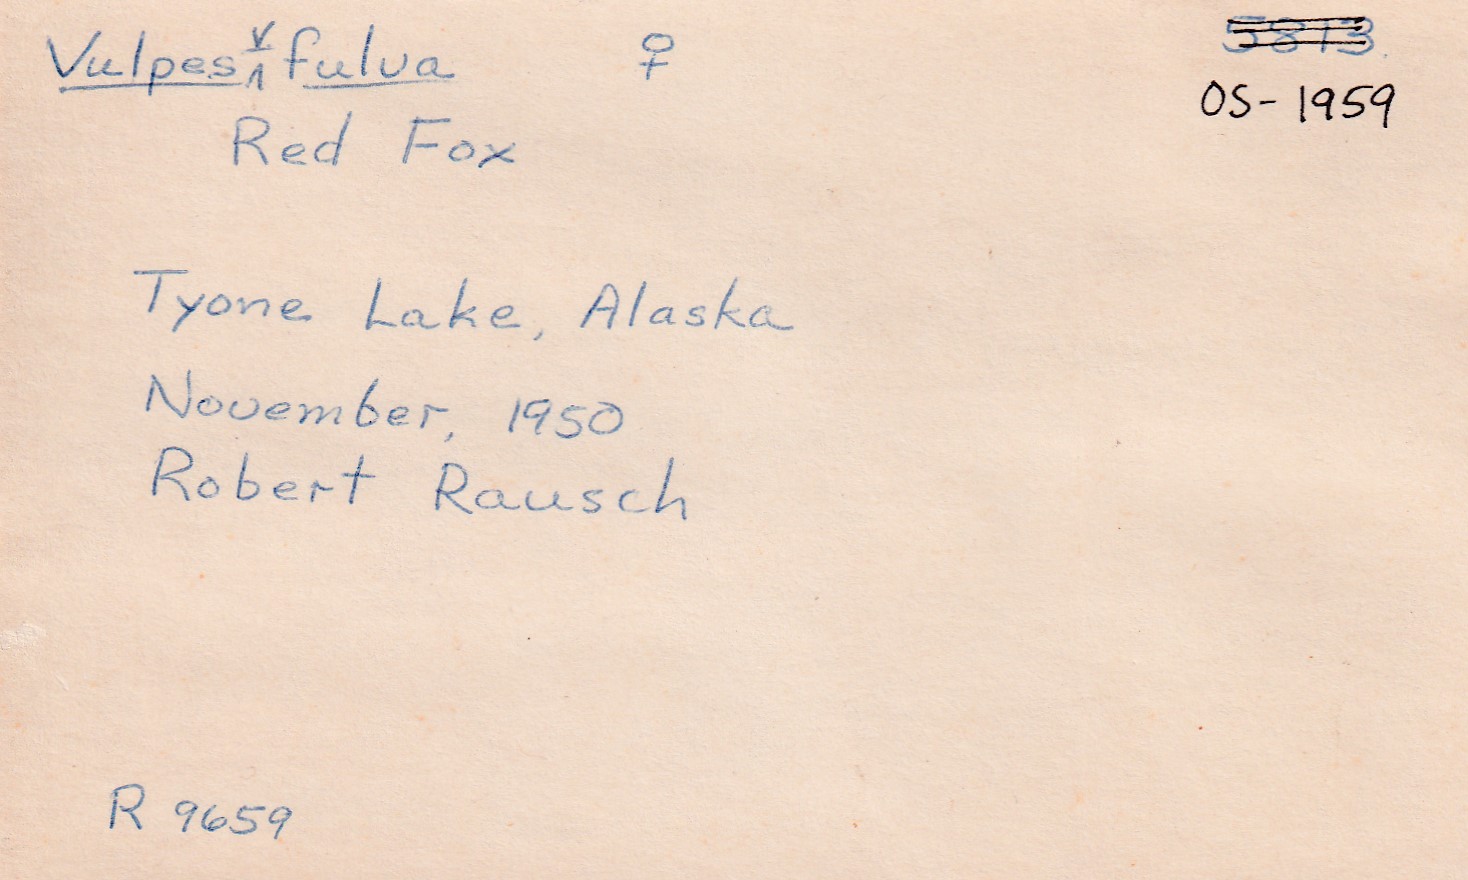 Vulpes v fulva ♀ 5813.
OS- 1959
Red Fox
Tyone Lake, Alaska
November, 1950
Robert Rausch
R 9659